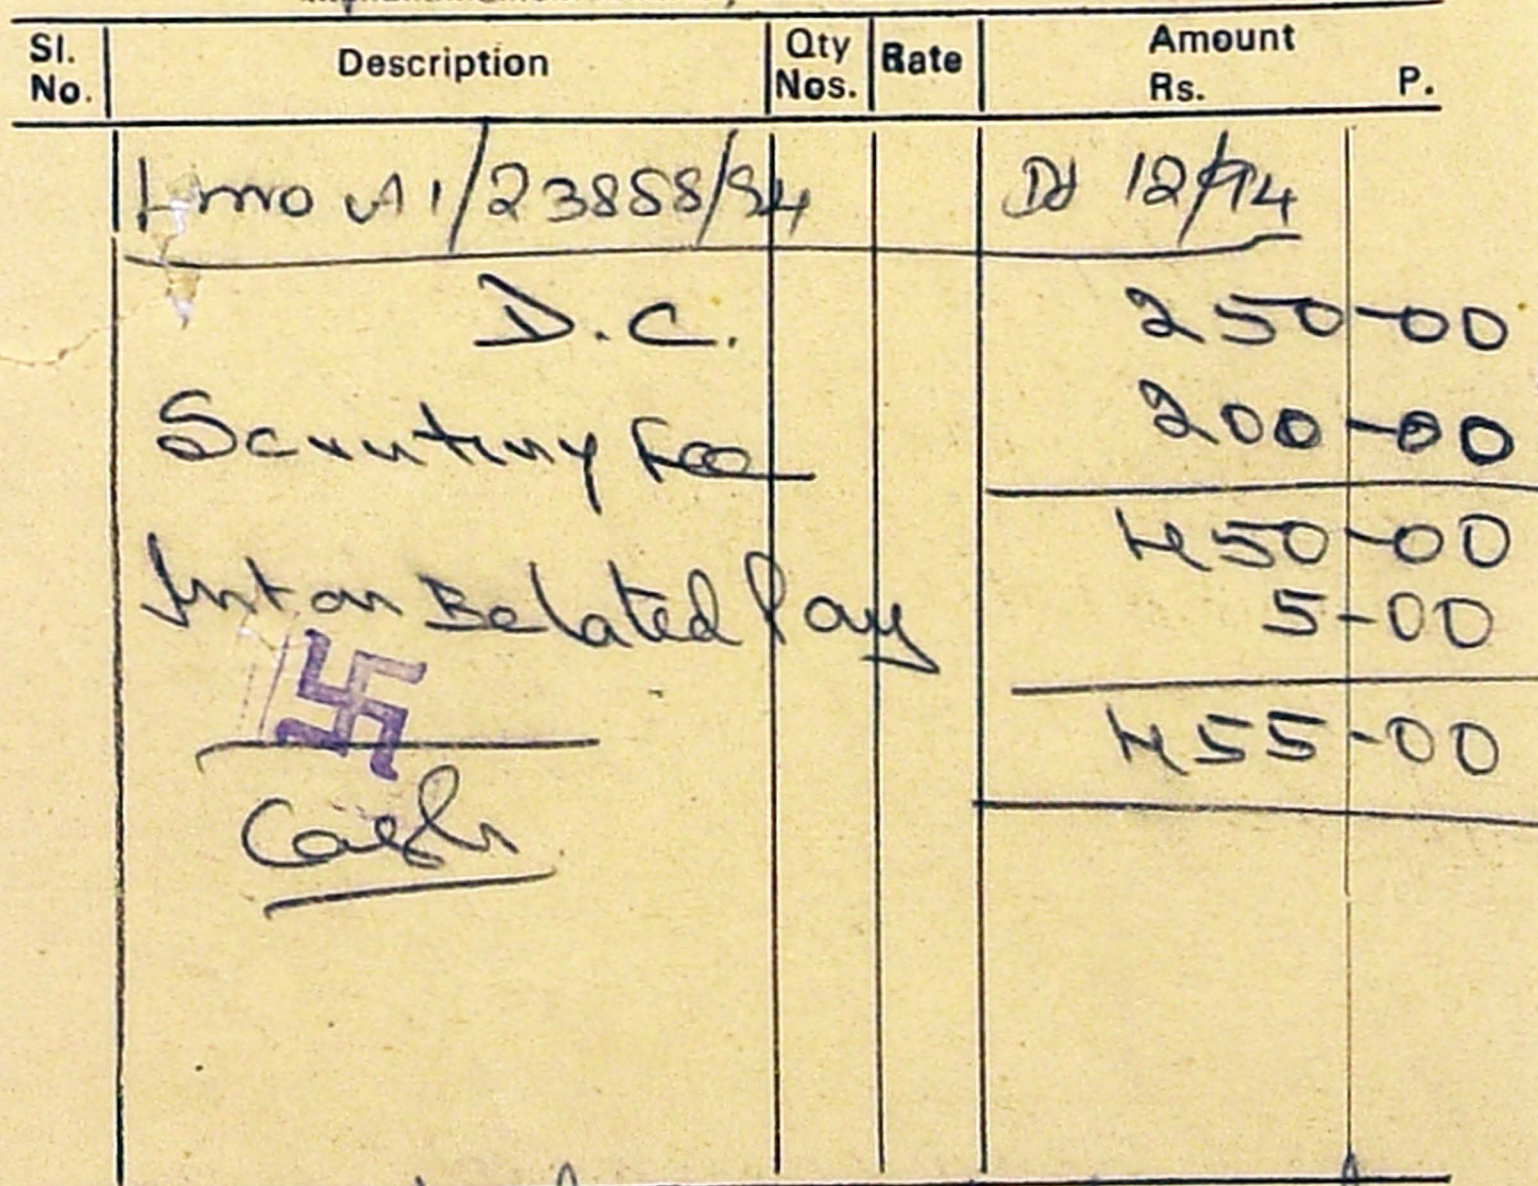 Sl. No. Description Qty Nos. Rate Amount Rs. P.
Lr no A1/23858/94 Dd 12/94
D.C. 250-00
Scrutiny Fee 200-00
450-00
Int on Belated Pay 5-00
455-00
Cash